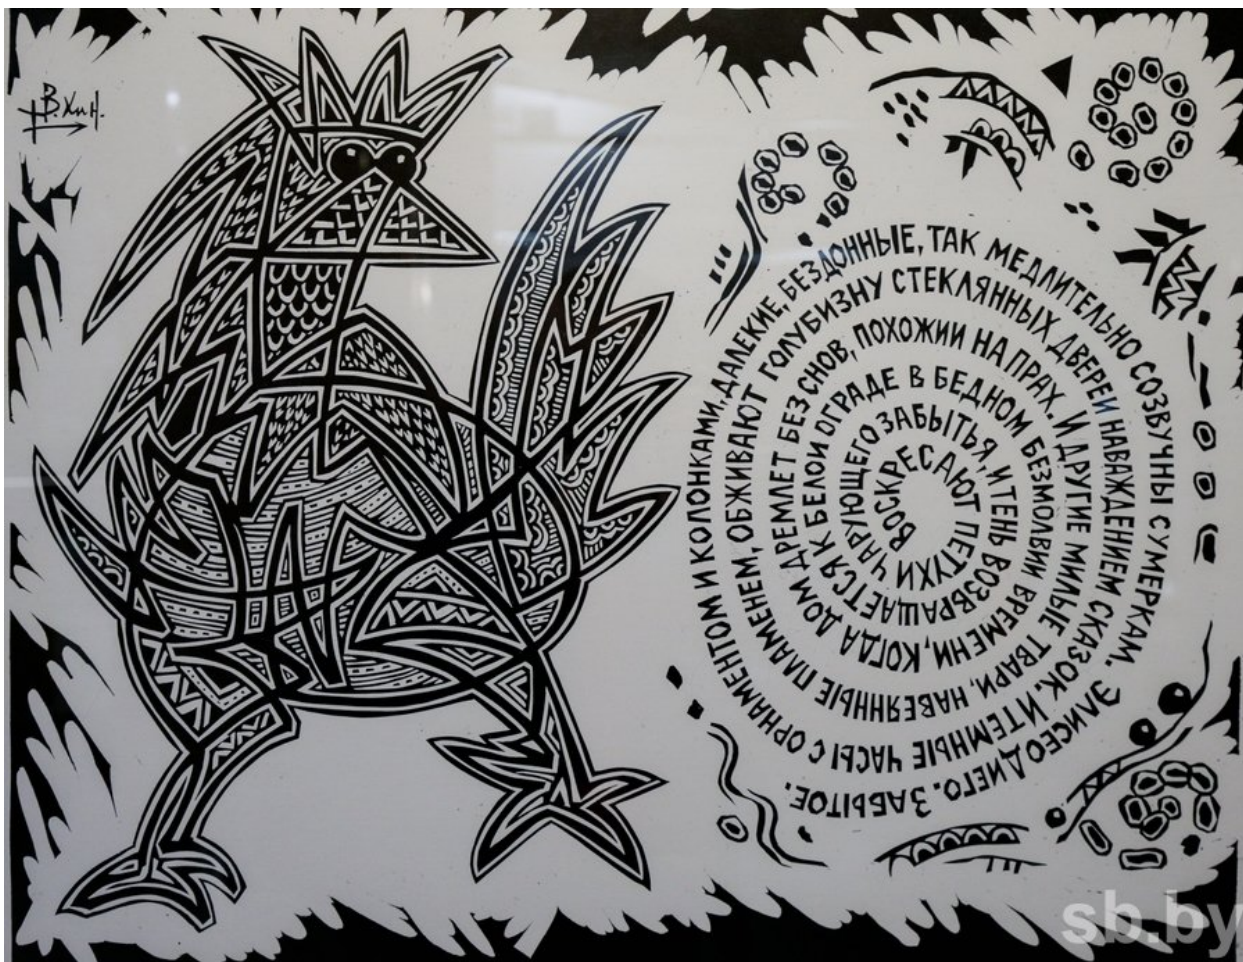 В. Хин.
ВОСКРЕСАЮТ ПЕТУХИ ЧАРУЮЩЕГО ЗАБЫТЬЯ, И ТЕНЬ ВОЗВРАЩАЕТСЯ К БЕЛОЙ ОГРАДЕ В БЕДНОМ БЕЗМОЛВИИ ВРЕМЕНИ, КОГДА ДОМ ДРЕМЛЕТ БЕЗ СНОВ, ПОХОЖИЙ НА ПРАХ. И ДРУГИЕ МИЛЫЕ ТВАРИ, НАВЕЯННЫЕ ПЛАМЕНЕМ, ОБЖИВАЮТ ГОЛУБИЗНУ СТЕКЛЯННЫХ ДВЕРЕЙ НАВАЖДЕНИЕМ СКАЗОК. И ТЕМНЫЕ ЧАСЫ С ОРНАМЕНТОМ И КОЛОНКАМИ, ДАЛЕКИЕ, БЕЗДОННЫЕ, ТАК МЕДЛИТЕЛЬНО СОЗВУЧНЫ СУМЕРКАМ. ЭЛИСЕО ДИЕГО. ЗАБЫТОЕ.
sb.by